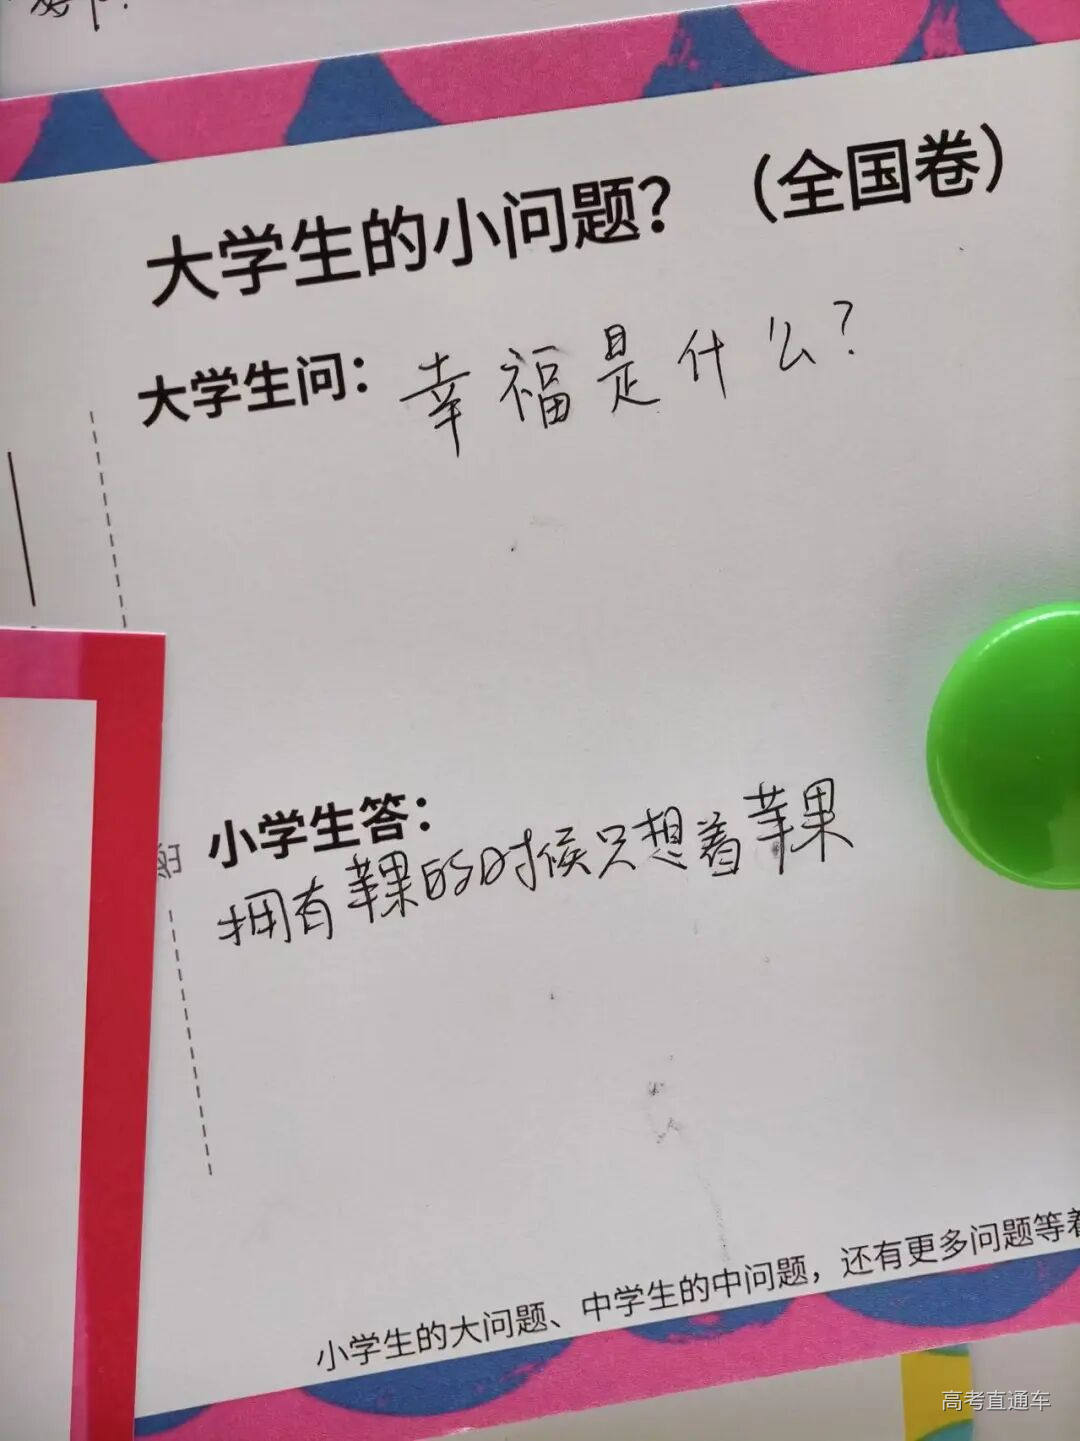 大学生的小问题？（全国卷）
大学生问：幸福是什么？
小学生答：
拥有苹果的时候只想着苹果
小学生的大问题、中学生的中问题，还有更多问题等着
高考直通车